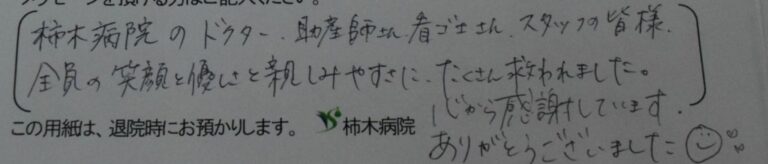 メッセージを預ける方はご記入ください。
柿木病院のドクター、助産師さん、看ゴ士さん、スタッフの皆様、
全員の笑顔と優しさと親しみやすさに、たくさん救われました。
心から感謝しています。
この用紙は、退院時にお預かりします。 柿木病院
ありがとうございました